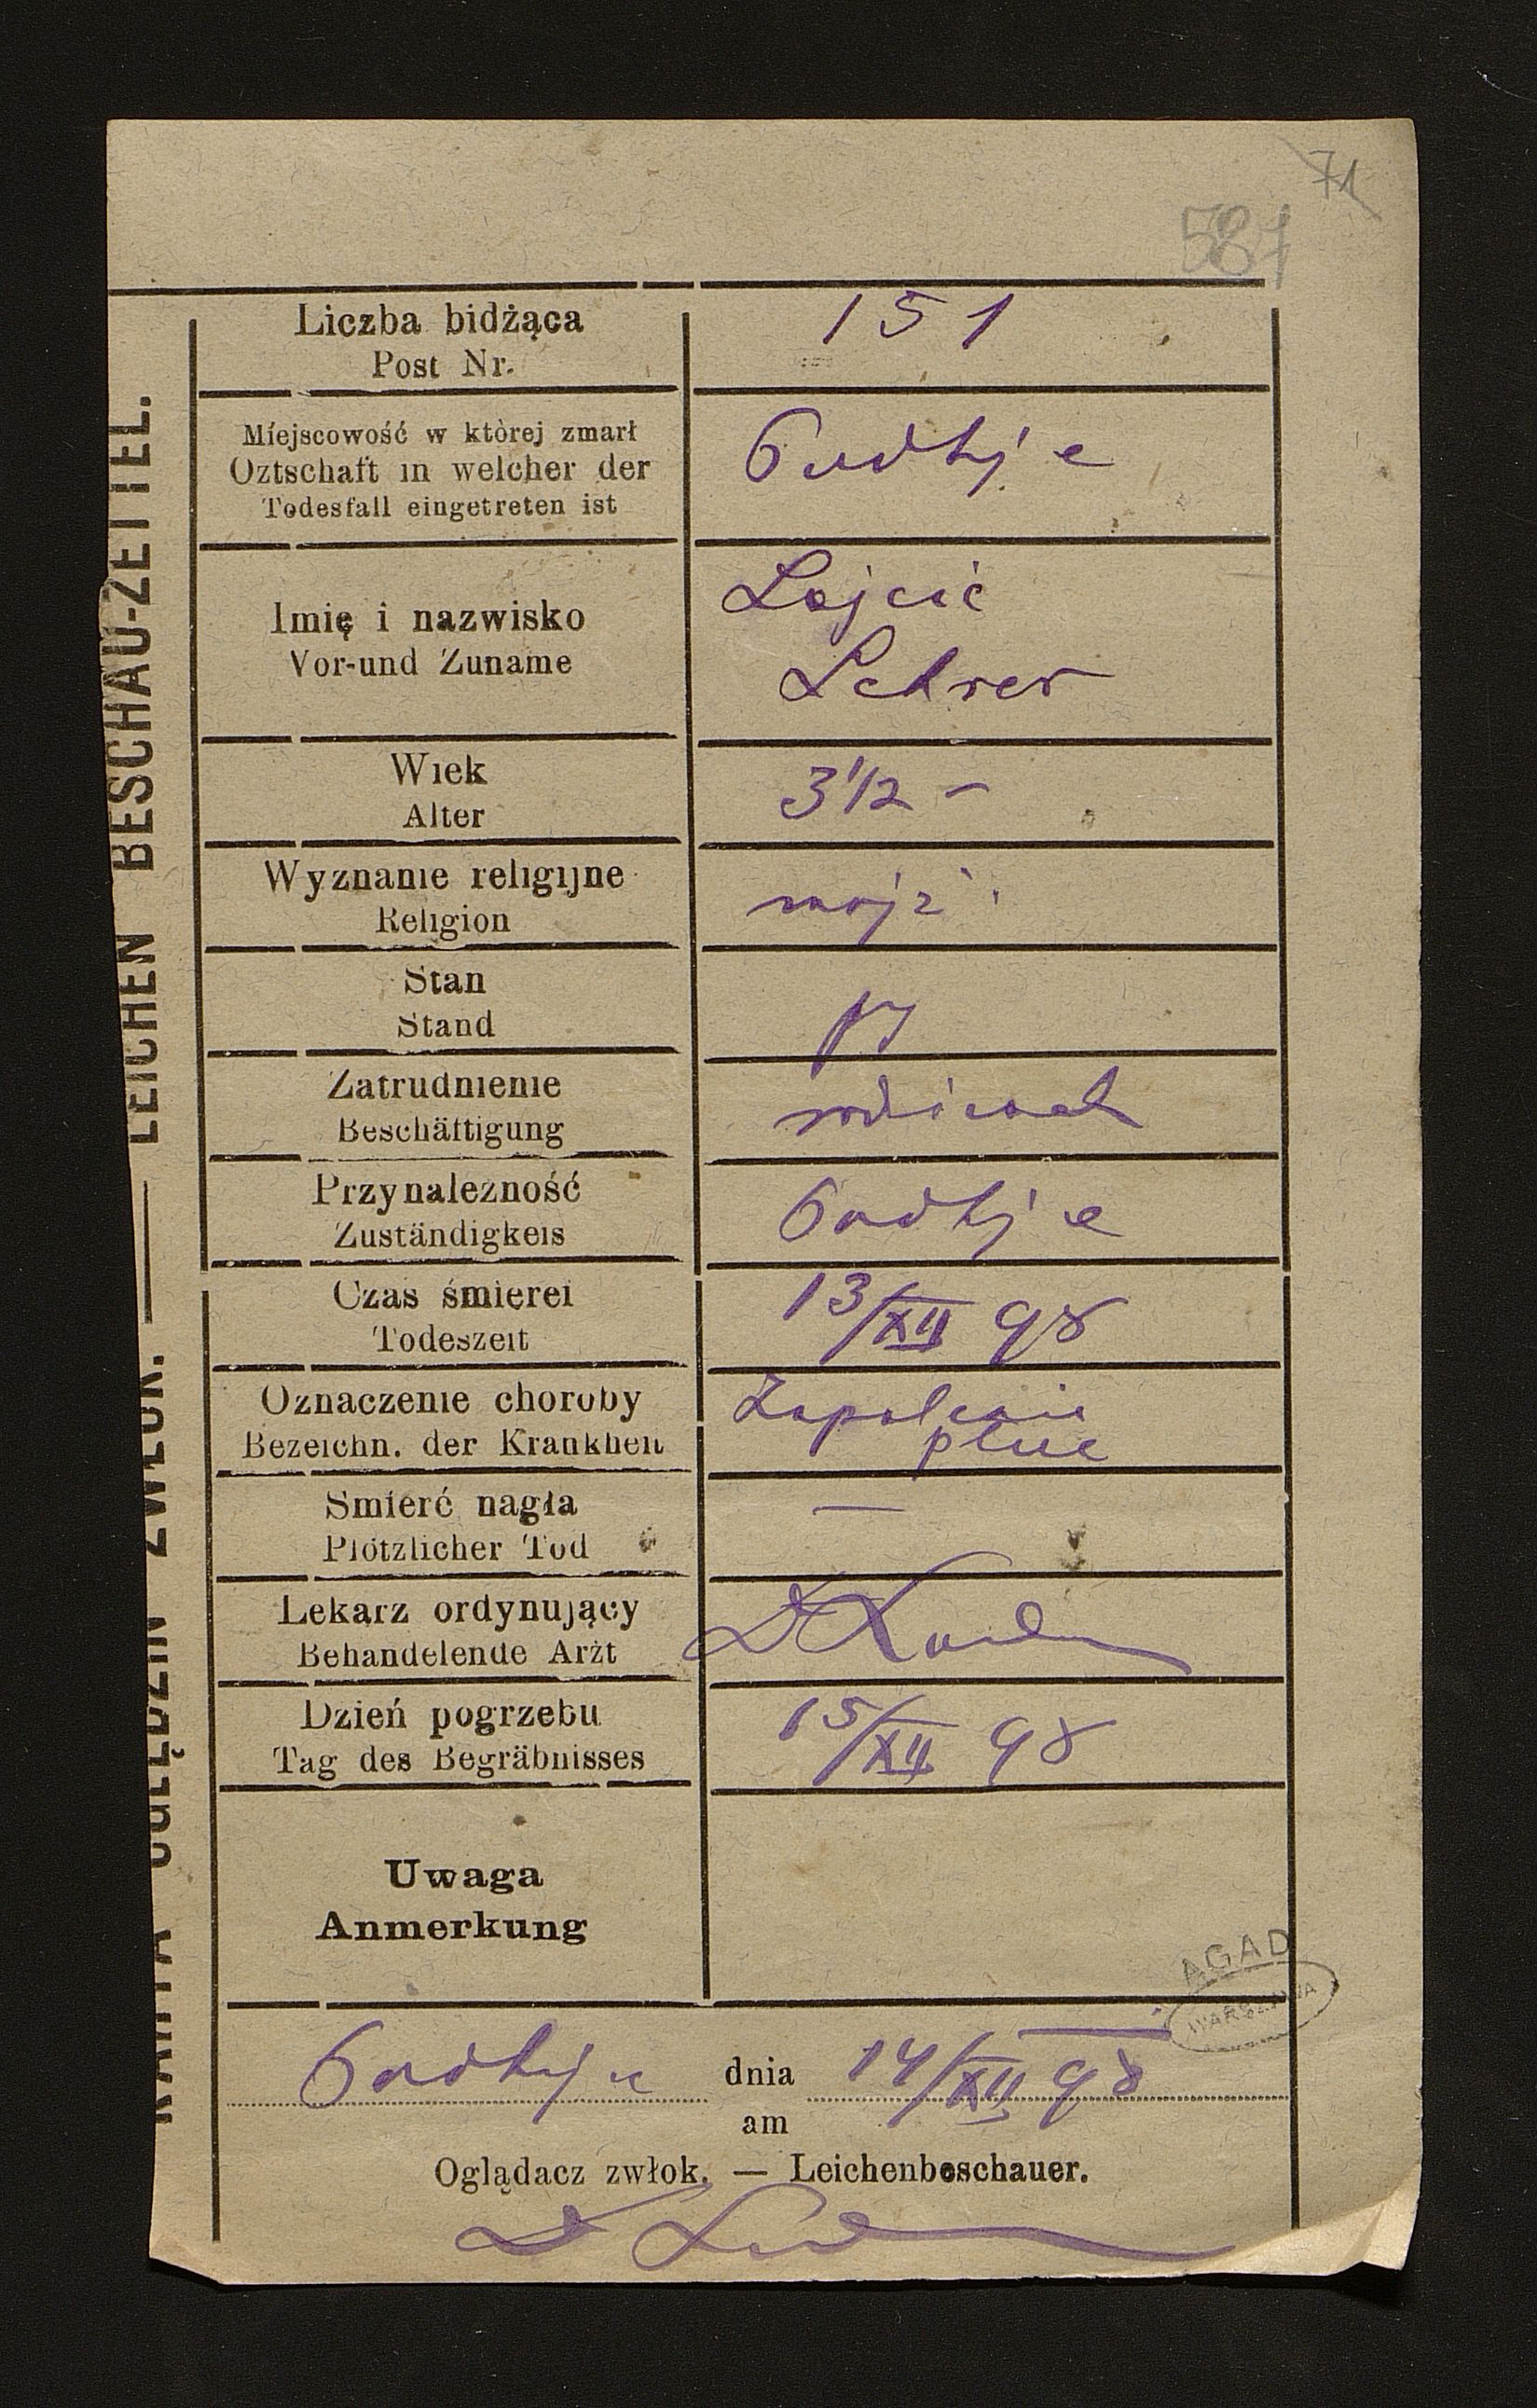 71
587
KARTA OGLĘDZIN ZWŁOK. — LEICHEN BESCHAU-ZETTEL.
Liczba bidżąca
Post Nr.
151
Miejscowość w której zmarł
Oztschaft in welcher der
Todesfall eingetreten ist
Imię i nazwisko
Vor-und Zuname
Lehrer
Wiek
Alter
3 1/2 –
Wyznanie religijne
Religion
mojż
Stan
Stand
Zatrudnienie
Beschäftigung
Przynależność
Zuständigkeis
Czas śmierei
Todeszeit
13/XII 98
Oznaczenie choroby
Bezeichn. der Krankheit
Zapalenie
płuc
Smierć nagła
Plötzlicher Tod
—
Lekarz ordynujący
Behandelende Arżt
Dzień pogrzebu
Tag des Begräbnisses
15/XII 98
Uwaga
Anmerkung
AGAD
WARSZAWA
dnia 14/XII 98
am
Oglądacz zwłok. — Leichenbeschauer.